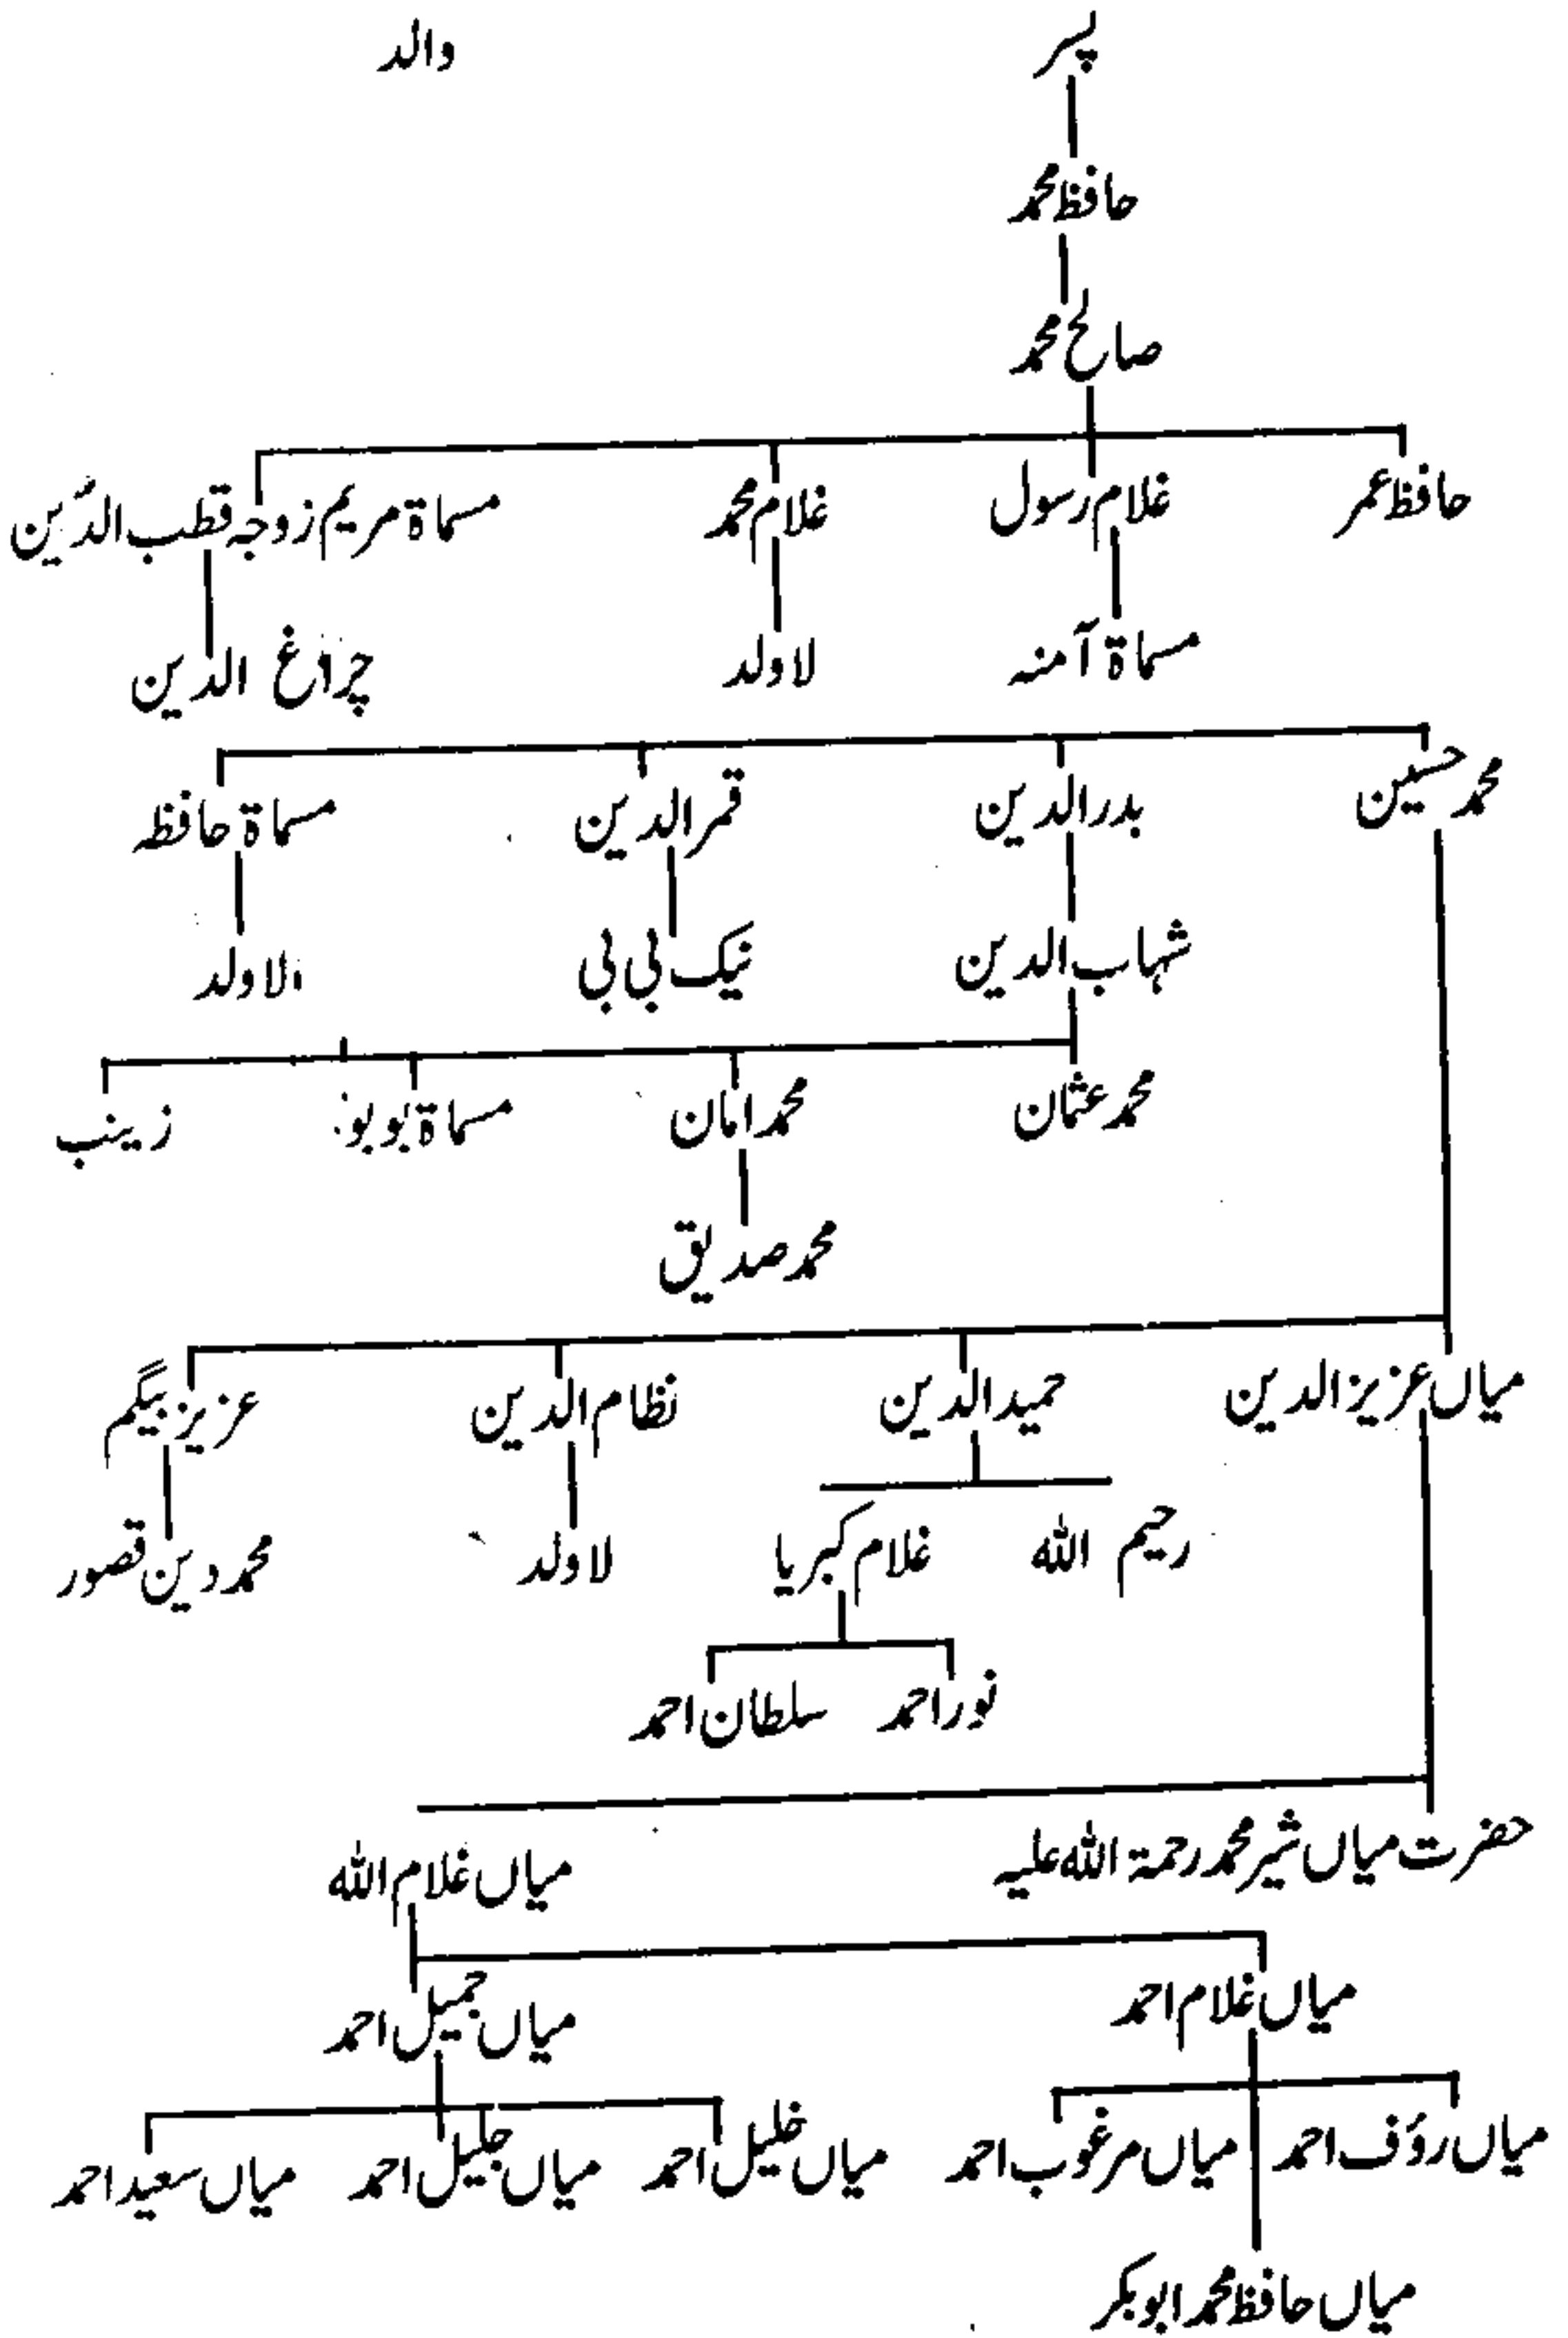 پسر والد
حافظ محمد
صالح محمد
حافظ عمر غلام رسول غلام محمد مسماۃ مریم زوجہ قطب الدین
مسماۃ آمنہ لاولد چراغ الدین
محمد حسین بدر الدین قمر الدین مسماۃ حافظہ
شہاب الدین نیک بی بی لاولد
محمد عثمان محمد امان مسماۃ بوبو زینب
محمد صدیق
میاں عزیز الدین حمید الدین نظام الدین عزیز بیگم
رحیم اللہ غلام کبریا لاولد محمد دین قصور
نور احمد سلطان احمد
حضرت میاں شیر محمد رحمۃ اللہ علیہ میاں غلام اللہ
میاں غلام احمد میاں جمیل احمد
میاں رؤف احمد میاں مرغوب احمد میاں خلیل احمد میاں جلیل احمد میاں سعید احمد
میاں حافظ محمد ابوبکر